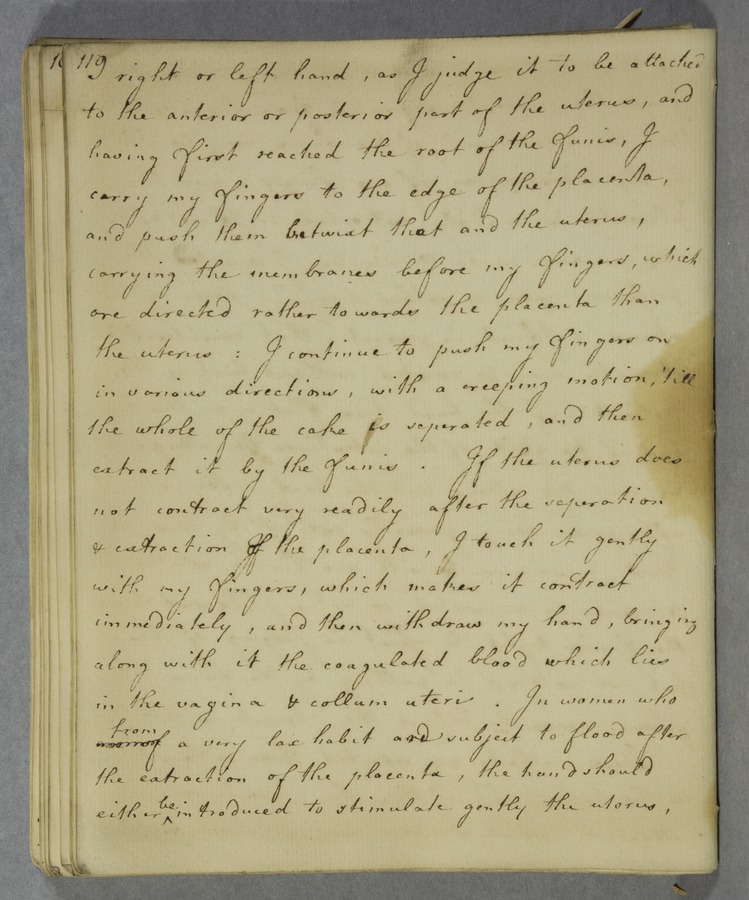 119 right or left hand , as I judge it to be attached
to the anterior or posterior part of the uterus, and
having first reached the root of the funis, I
carry my fingers to the edge of the placenta,
and push them betwixt that and the uterus,
carrying the membranes before my fingers, which
are directed rather towards the placenta than
the uterus : I continue to push my fingers on
in various directions, with a creeping motion, 'till
the whole of the cake is seperated , and then
extract it by the funis . If the uterus does
not contract very readily after the seperation
& extraction of the placenta, I touch it gently
with my fingers, which makes it contract
immediately , and then withdraw my hand, bringing
along with it the coagulated blood which lies
in the vagina & collum uteri . In women who
from
of a very lax habit are subject to flood after
the extraction of the placenta , the hand should
either be introduced to stimulate gently the uterus,